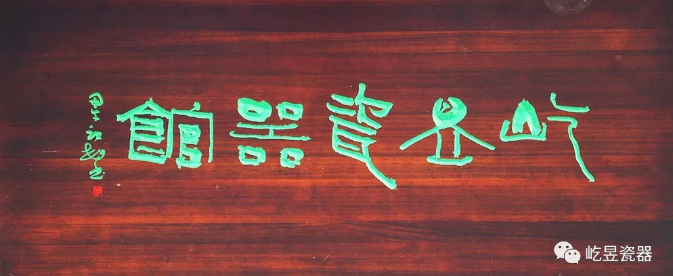 屹昱瓷器館
屹昱瓷器